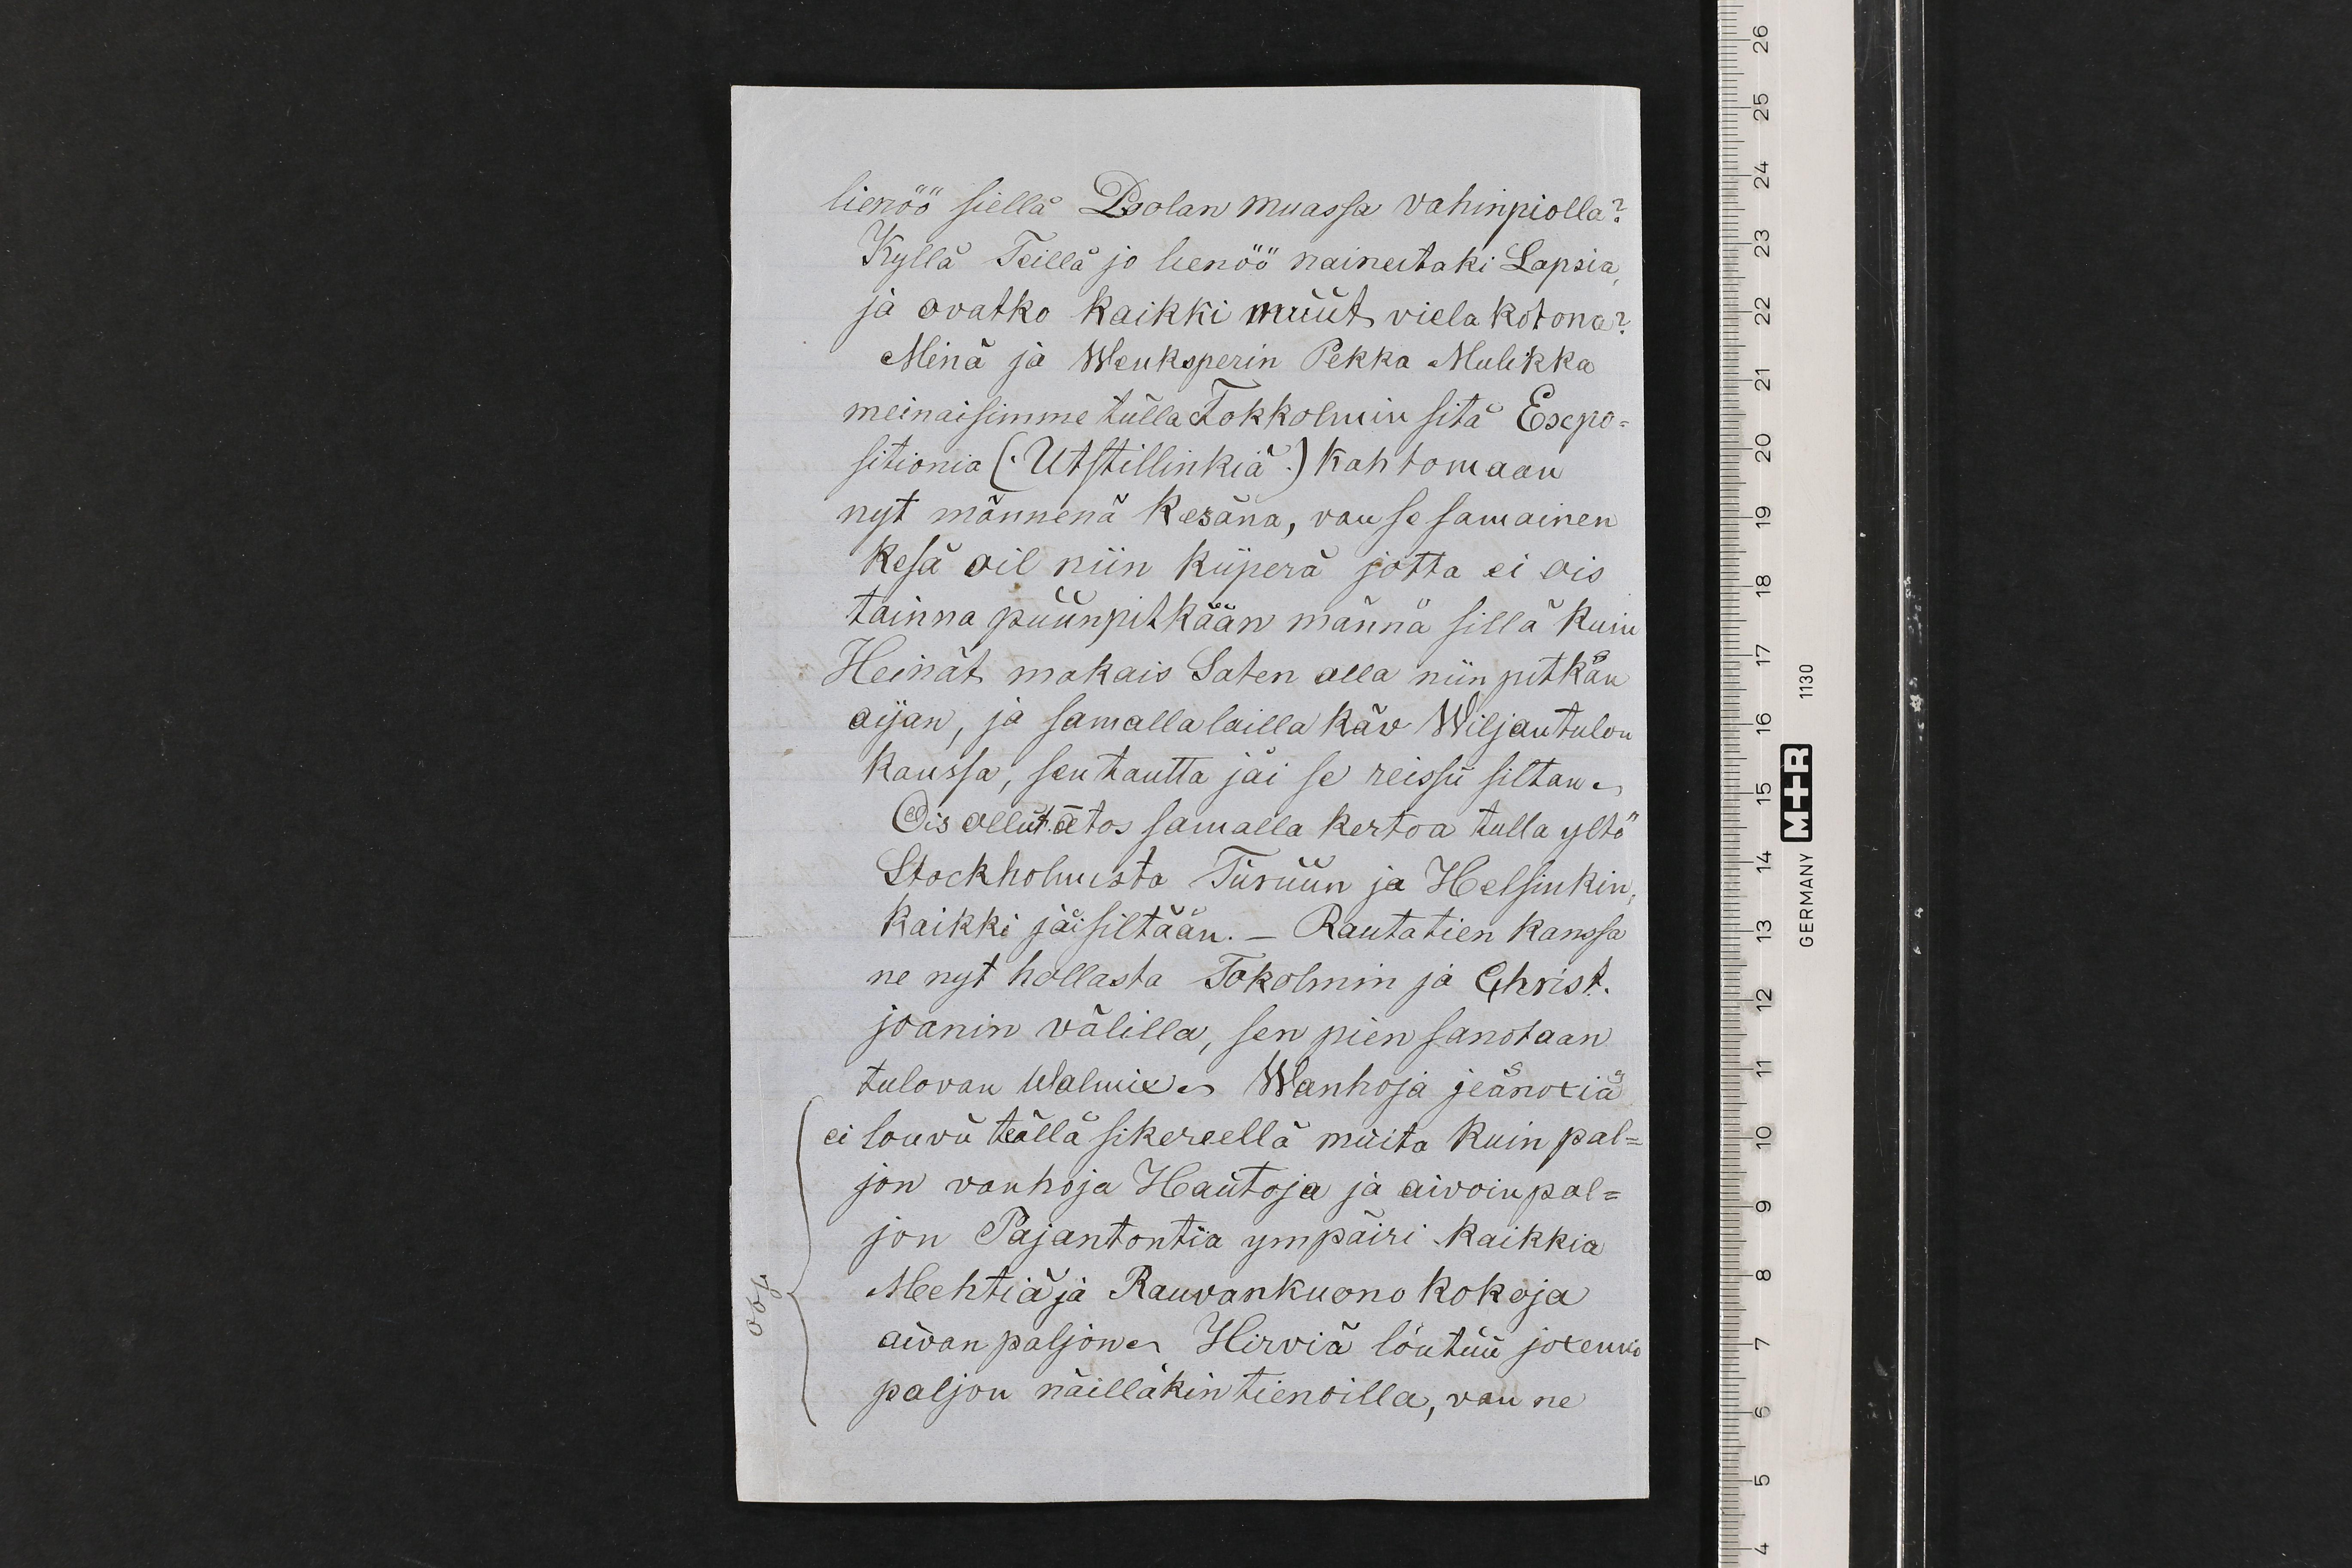 lienöö siellä Poolan muassa vahinpiolla?
Kyllä Teillä jo lienöö naineitaki Lapsia,
ja ovatko kaikki muut vielä kotona?
Minä ja Wauksperin Pekka Mulikka
meinaisimme tulla Tokkolmin sitä Expo=
sitionia (: Utstillinkiä :) kahtomaan
nyt männenä kesänä, van se samainen
kesä oil niin küperä jotta ei ois
tainna puunpitkään männä sillä kuin
Heinät makais Saten alla niin pitkän
aijan, ja samalla lailla käv Wiljantulon
kanssa, sentautta jäi se reissu siltan.
Ois ollut ätos samalla kertoa tulla yltö
Stockholmista Turuun ja Helsinkin,
kaikki jäi siltään. – Rautatien kanssa
ne nyt hollasta Tokolmin ja Christ.
joanin välilla, sen pien sanotaan
tulovan Walmixe. Wanhoja jeänöxiä
ei louvu teällä sikereellä muita kuin pal=
jon vanhoja Hautoja ja aivoin pal=
jon Pajantontia ympäiri kaikkia
Mehtiä ja Rauvankuono kokoja
aivan paljon. Hirviä löutuu joxenni
paljon näilläkin tienoilla, van ne
GERMANY M+R 1130
26
25
24
23
22
21
20
19
18
17
16
15
14
13
12
11
10
9
8
7
6
5
4